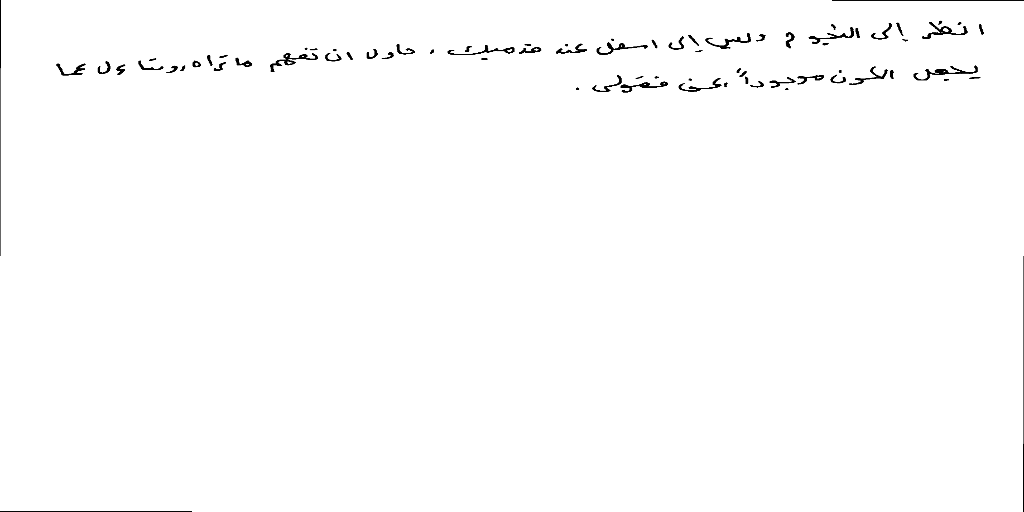 انظر إلى النجوم وليس إلى اسفل عند قدميك ، حاول ان تفهم ما تراه ، وتساءل عما
يجعل الكون موجوداً ، كن فضولي .